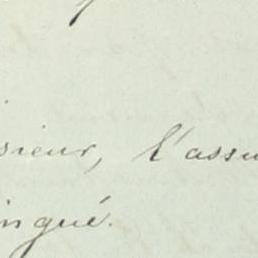 sieur, l'assu
ingué.